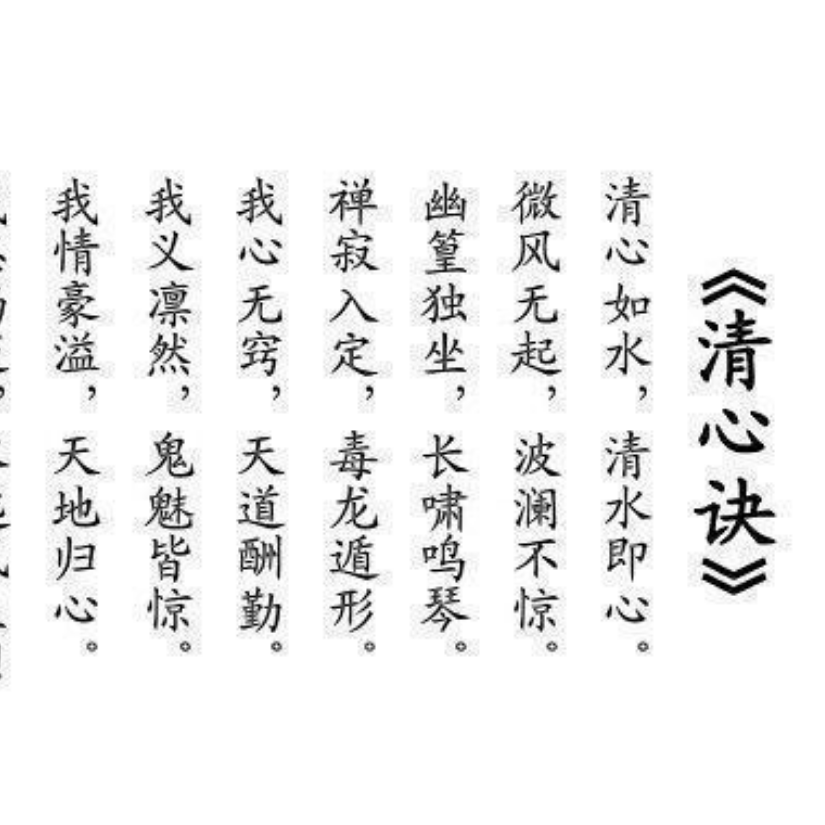 《清心诀》
清心如水，清水即心。
微风无起，波澜不惊。
幽篁独坐，长啸鸣琴。
禅寂入定，毒龙遁形。
我心无窍，天道酬勤。
我义凛然，鬼魅皆惊。
我情豪溢，天地归心。